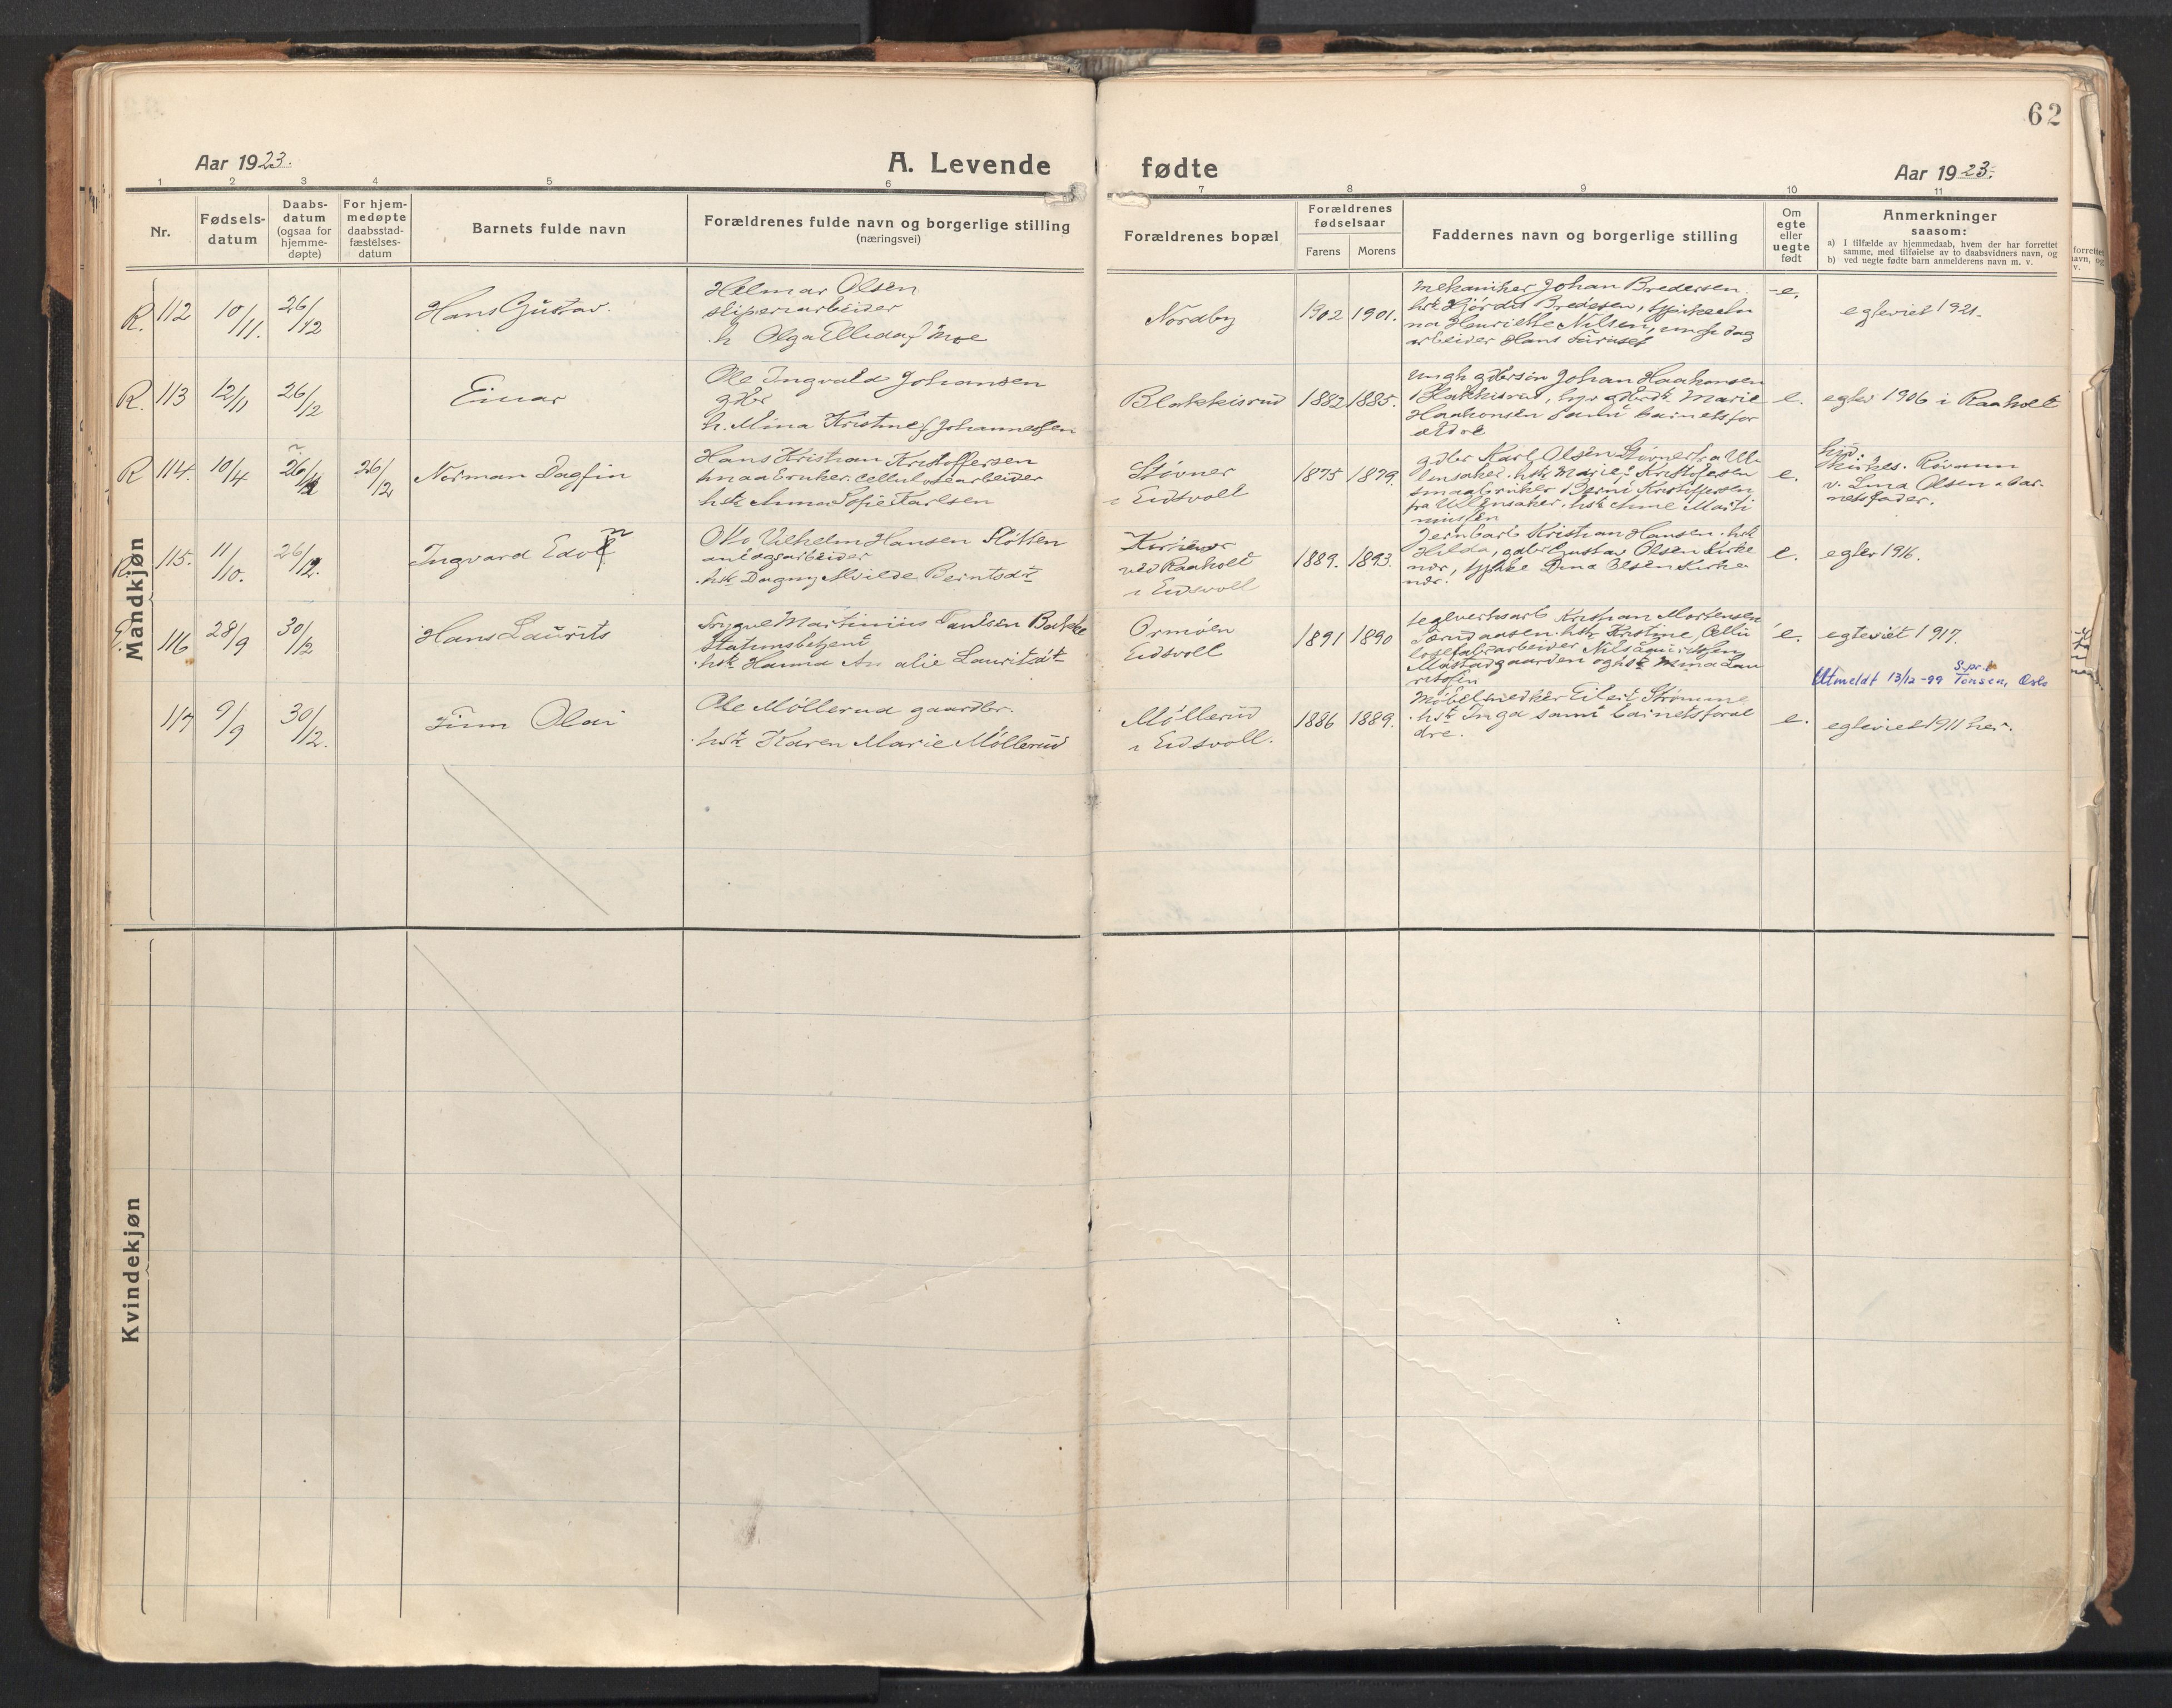 62
Aar 1923.
A. Levende fødte
Aar 1923.
1 2 3 4 5 6 7 8 9 10 11
Nr.
Fødsels-
datum
Daabs-
datum
(ogsaa for
hjemme-
døpte)
For hjem-
medøpte
daabsstad-
fæstelses-
datum
Barnets fulde navn
Forældrenes fulde navn og borgerlige stilling
(næringsvei)
Forældrenes bopæl
Forældrenes
fødselsaar
Farens
Morens
Faddernes navn og borgerlige stilling
Om
egte
eller
uegte
født
Anmerkninger
saasom:
a) I tilfælde av hjemmedaab, hvem der har forrettet
samme, med tilføielse av to daabsvidners navn, og
b) ved uegte fødte barn anmelderens navn m. v.
Mandkjøn
R. 112 10/11. 26/12
Hans Gustav.
Helmar Olsen
sliperiarbeider
h. Olga Ellida f Moe
Nordby
1902 1901.
mekaniker Johan Bredersen.
hst Hjørdis Bredesen,
Henriette Nilsen, dag
arbeider Hans
e.
egteviet 1921.
R. 113 12/11 26/12
Einar
Ole Ingvald Johansen
gdbr
h. Mina Kristine f Johannessen
Blakkisrud
1882 1885.
ungk gdbrsøn Johan Haakonsen
Blakkisrud, Marie
Haakonsen samt barnets for
ældre
e.
egtev 1906 i Raaholt
R 114. 10/4 26/12 26/12
Norman Dagfin
Hans Kristian Kristoffersen
smaabruker. cellulosearbeider
hst Anna Sofie Karlsen
Støvner
i Eidsvoll
1875 1879.
gdbr Karl Olsen Støvner fra Ul
lensaker. hst Marie Kristofersen
smaabruker Kristoffersen
fra Ullensaker. hst Anne Marti
nussen
e.
v. Lina Olsen. bar-
nets fader.
R. 115. 11/10. 26/12.
Ingvard Edvin
Otto Vilhelm Hansen Sletten
anlægsarbeider
hst Dagny Alvilde Berntsdt
ved Raaholt
i Eidsvoll
1889. 1893.
Jernbarb Kristian Hansen. hst
Hilda, gdbr Gustav Olsen Kirke
ner, Olsen Kirke
ner.
e.
egtev 1916.
116 28/9 30/12
Hans Laurits
Trygve Martinius Paulsen Bakke
Stationsbetjent
hst Hanna Amalie Lauritzdt
Ormøen
Eidsvoll
1891 1890
teglverksarb Kristian Mortensen
hst Kristine, Cellu
losefabrarbeider Nils Lauritssen
og hst Mina Lau
ritsen
e.
egteviet 1917.
Utmeldt 13/12-99 S.pr.t Tonsen, Oslo
117 9/9 30/12.
Finn Olai
Ole Møllerud gaardbr.
hst Karen Marie Møllerud
Møllerud
i Eidsvoll.
1886 1889.
Møbelsnedker Eilert Strømme
hst Inga samt barnets foræl
dre.
e.
egteviet 1911 her.
Kvindekjøn